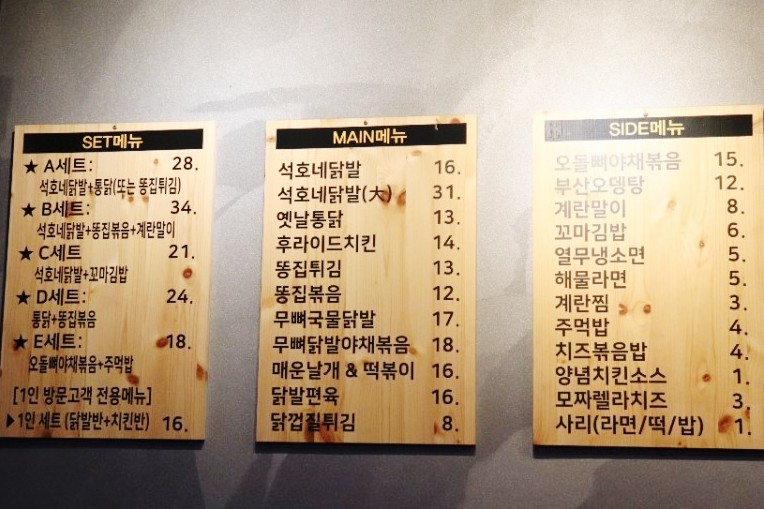 SET메뉴
★ A세트: 28.
석호네닭발+통닭(또는 똥집튀김)
★ B세트: 34.
석호네닭발+똥집볶음+계란말이
★ C세트 21.
석호네닭발+꼬마김밥
★ D세트: 24.
통닭+똥집볶음
★ E세트: 18.
오돌뼈야채볶음+주먹밥
[1인 방문고객 전용메뉴]
▶1인 세트 (닭발반+치킨반) 16.
MAIN메뉴
석호네닭발 16.
석호네닭발(大) 31.
옛날통닭 13.
후라이드치킨 14.
똥집튀김 13.
똥집볶음 12.
무뼈국물닭발 17.
무뼈닭발야채볶음 18.
매운날개 & 떡볶이 16.
닭발편육 16.
닭껍질튀김 8.
SIDE메뉴
오돌뼈야채볶음 15.
부산오뎅탕 12.
계란말이 8.
꼬마김밥 6.
열무냉소면 5.
해물라면 5.
계란찜 3.
주먹밥 4.
치즈볶음밥 4.
양념치킨소스 1.
모짜렐라치즈 3.
사리(라면/떡/밥) 1.